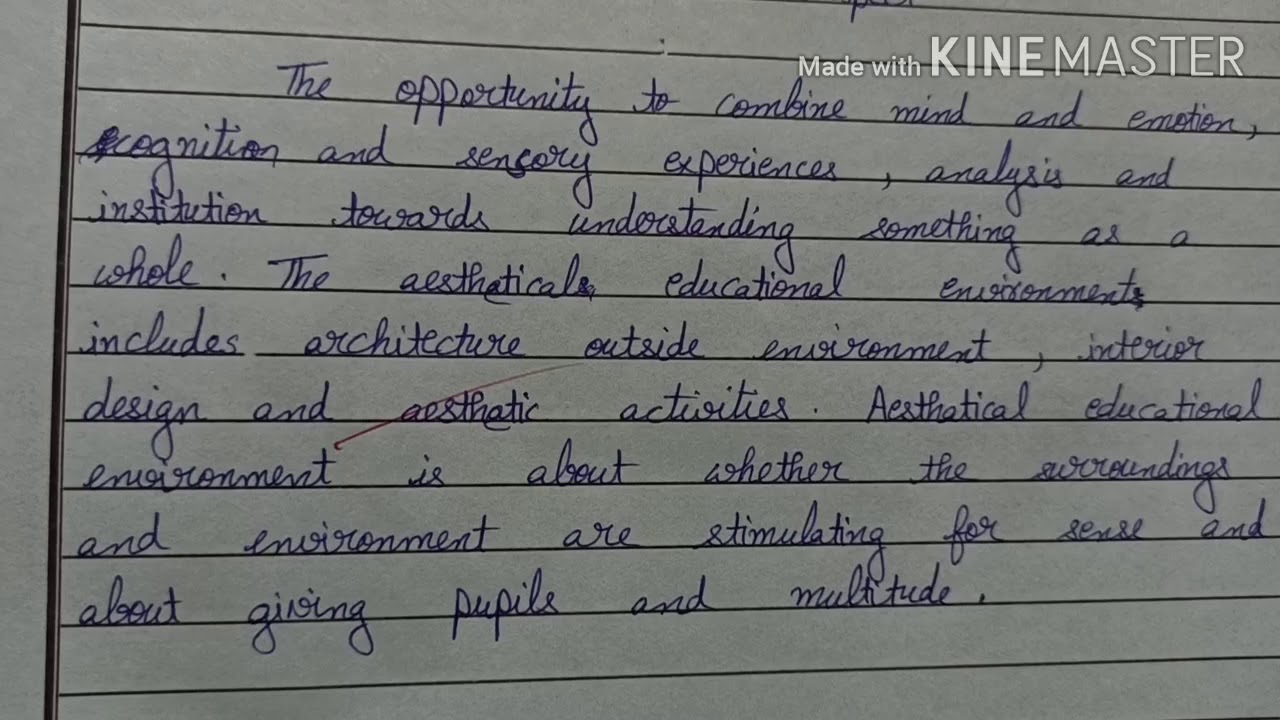 Made with KINEMASTER
The opportunity to combine mind and emotion,
cognition and sensory experiences, analysis and
institution towards understanding something as a
whole. The aesthatical educational environment
includes architecture outside environment, interior
design and aesthatic activities. Aesthatical educational
environment is about whether the surroundings
and environment are stimulating for sense and
about giving pupils and multitude.